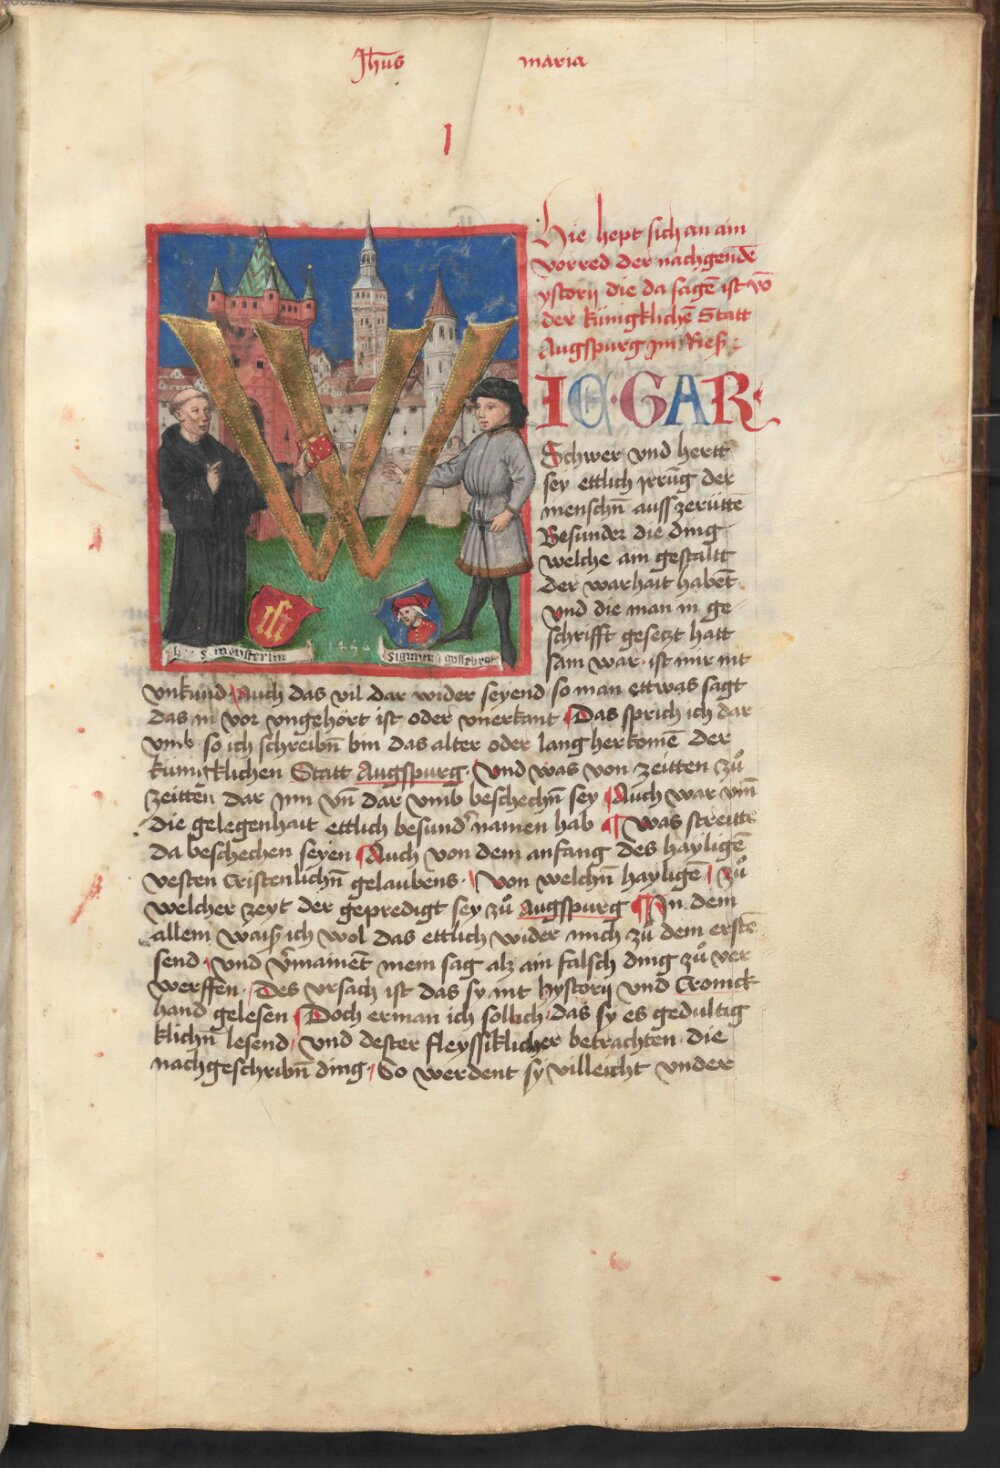 Jhūs maria
I
Hie hept sich an ain
vorred der nachgendē
ystorÿ die da sagē ist vō
der kunigklichē Statt
Augspurg jm Rieß :
W
IE·GAR·
Schwer vnd hertt
seÿ ettlich jrrūg der
menschn̄ auss zerüttē
Besunder die ding
welche ain gestaltt
der warhait habent
vnd die man in ge
schrifft gesetzt hatt
sam war ist mir nit
h s meÿsterlin
sigmund gossēbrot
vnkund Auch das vil dar wider seyend so man ettwas sagt
das in vor vngehört ist oder vnerkant Das sprich ich dar
vmb so ich schreibn̄ bin das alter oder lang herkomē der
kunigklichen Statt Augspurg · Vnd was von zeitten zů
zeitten dar jnn vn̄ dar vmb beschechn̄ seÿ Auch war vm̄
die gelegenhait ettlich besund' namen hab ¶ Was streitte
da beschechen seÿen Auch von dem anfang des haÿligē
vesten cristenlichn̄ gelaubens · Von welchn̄ hayligē zů
welcher zeÿt der gepredigt seÿ zů Augspurg ¶ In dem
allem waiß ich wol das ettlich wider mich zů dem erstē
send vnd v'mainēt mein sag alz ain falsch ding zů ver
werffen · Des vrsach ist das sÿ nit hÿstorÿ vnd Cronick
hand gelesen Doch erman ich sollich das sÿ es gedultig
klichn̄ lesend vnd dester fleÿssiklicher betrachten die
nachgeschribn̄ ding So werdent sÿ villeicht vnder